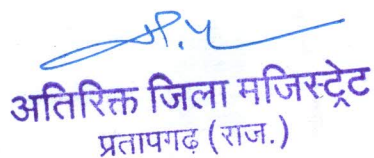 अतिरिक्त जिला मजिस्ट्रेट
प्रतापगढ़ (राज.)